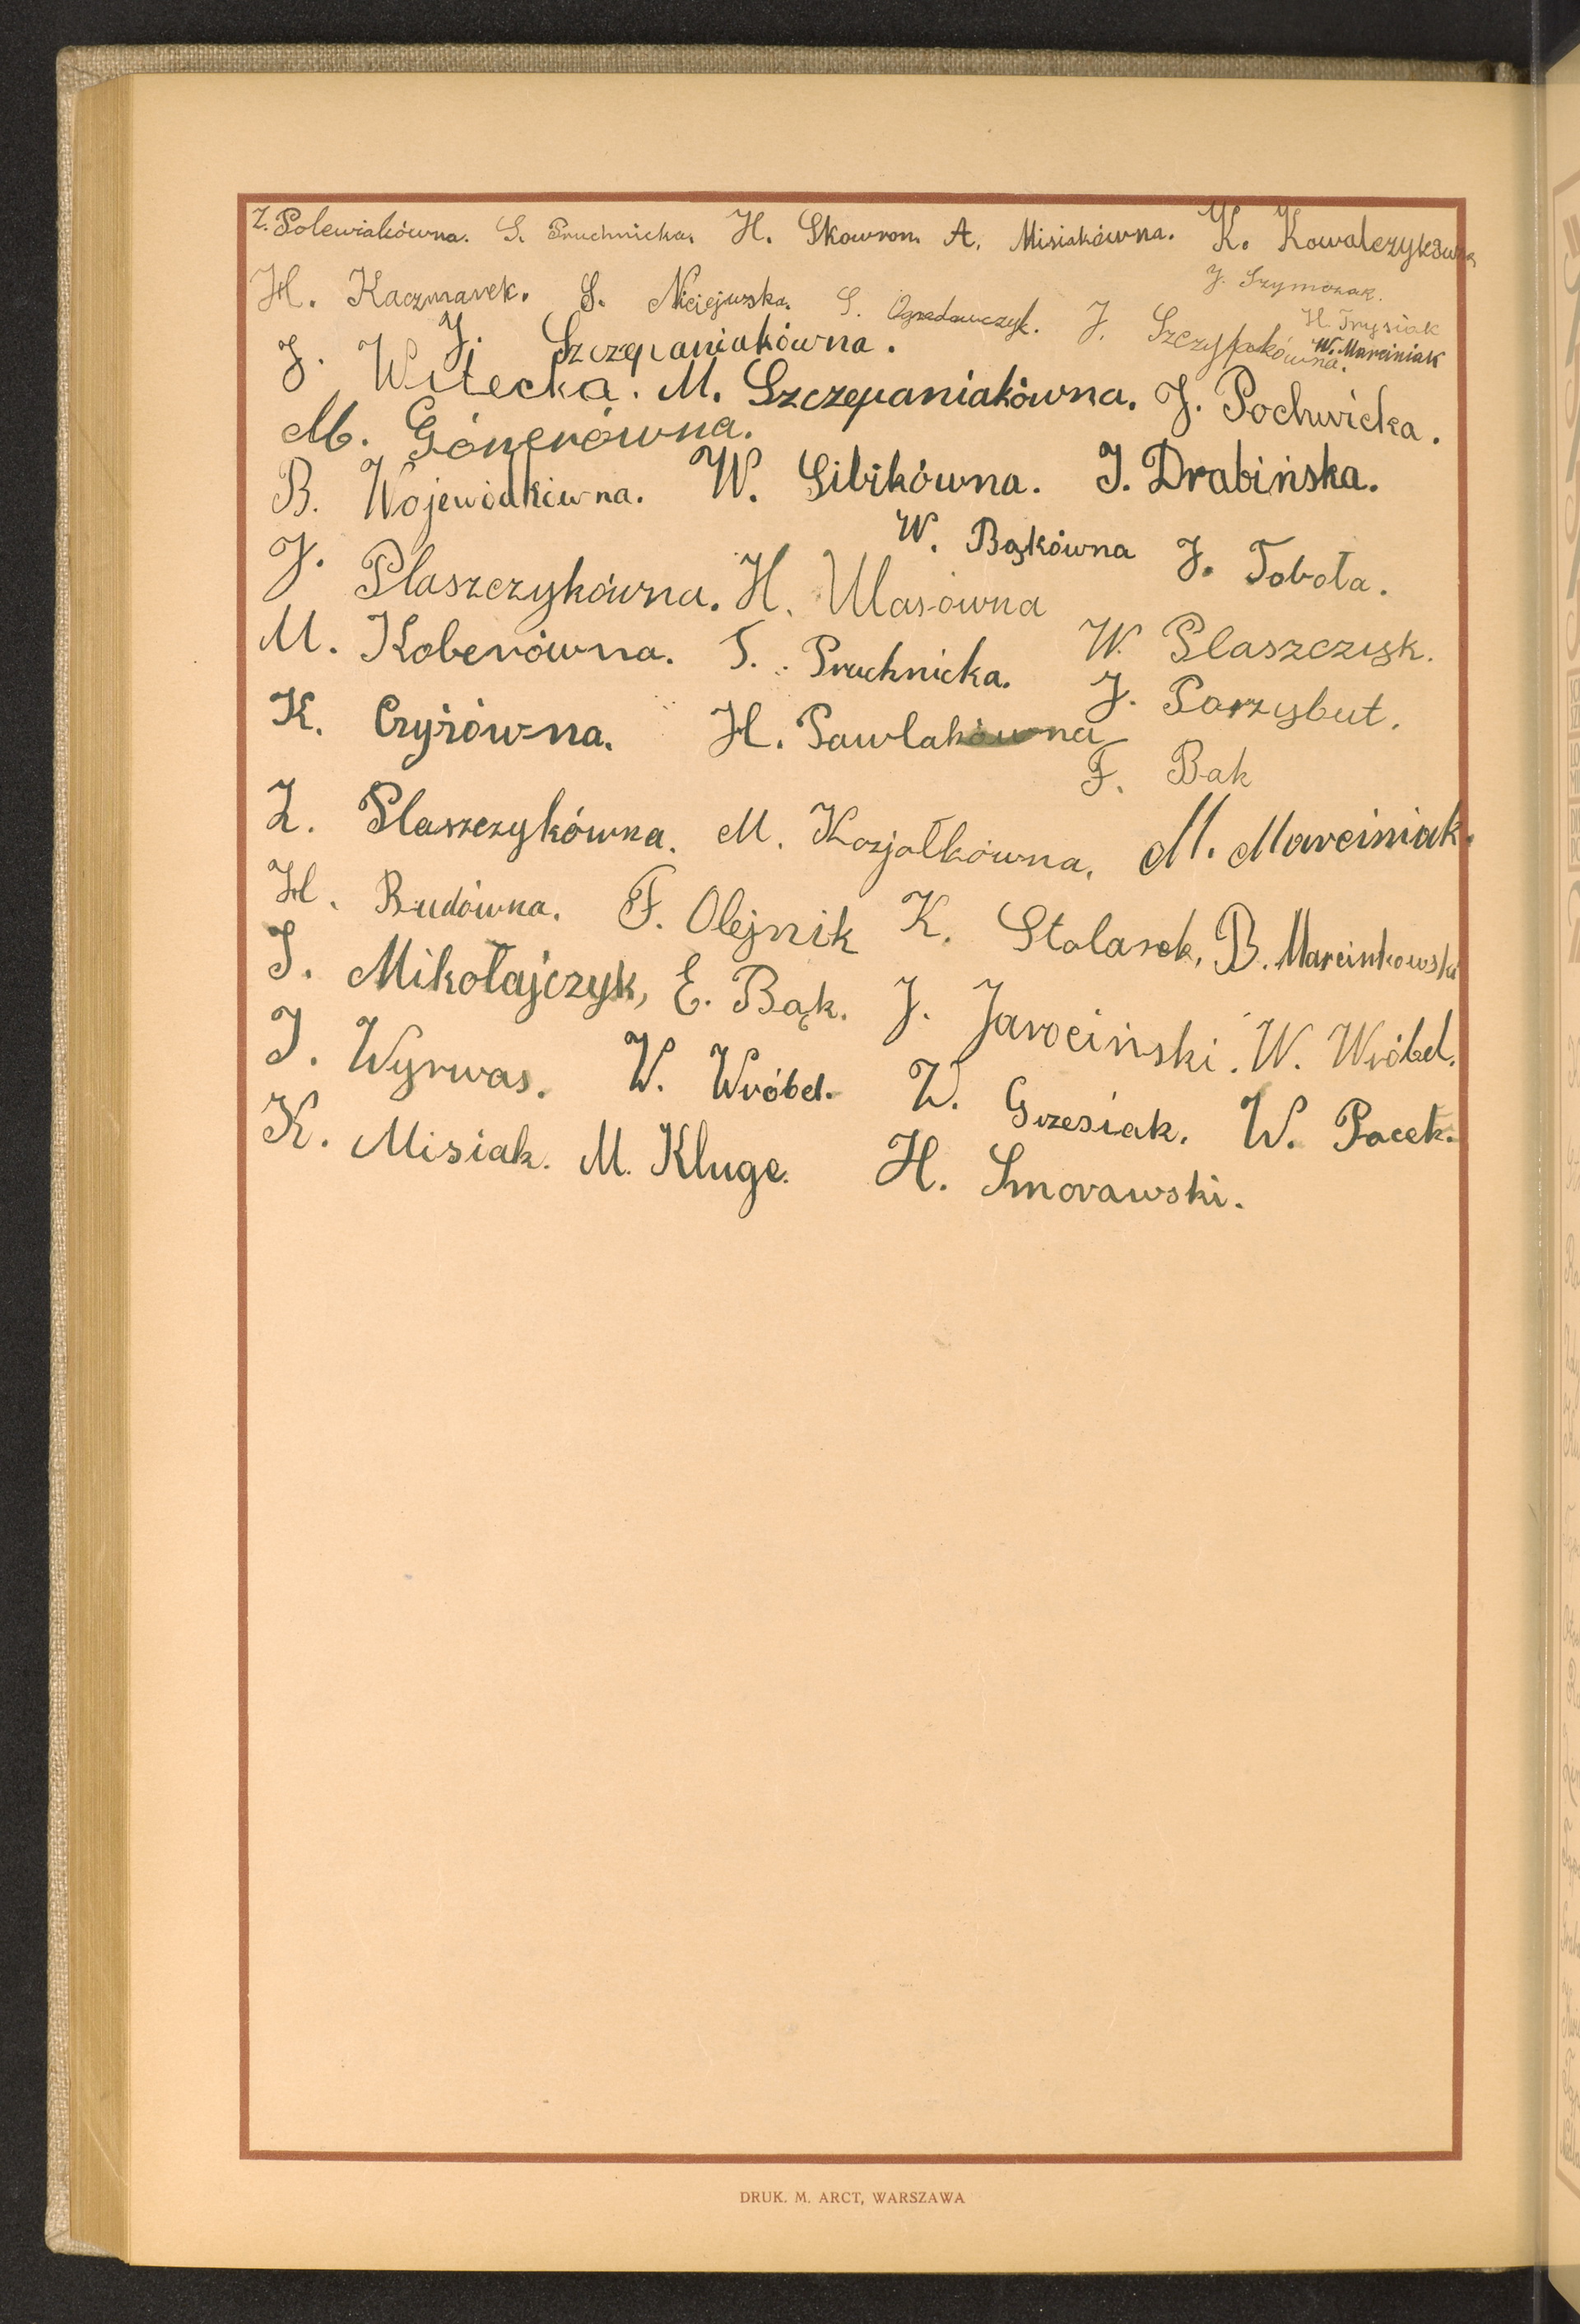 Z. Polewiakówna. S. Pruchnicka. H. Skowron. A. Misiakówna. K. Kowalczykówna
J. Szymczak.
H. Kaczmarek. S. Niciejewska. S. Ogrodowczyk. J. Szczypkakówna.
H. Trysiak
W. Marciniak
J. Szczepaniakówna.
J. Witecka. M. Szczepaniakówna. J. Pochwicka.
M. Gónerówna.
B. Wojewódkówna. W. Sibikówna. J. Drabińska.
W. Bąkówna J. Toboła.
J. Plaszczykówna. H. Ulasówna
W. Plaszczyk.
M. Koberówna. T. Pruchnicka.
J. Parzybut.
K. Czyżówna. H. Pawlakówna
F. Bak
Z. Plaszczykówna. M. Kozjołkówna. M. Marciniak.
H. Budówna. F. Olejnik K. Stolarek, B. Marcinkowski
J. Mikołajczyk, E. Bąk. J. Jarociński. W. Wróbel.
J. Wyrwas. W. Wróbel. W. Grzesiak. W. Pacek.
K. Misiak. M. Kluge. H. Smorawski.
DRUK. M. ARCT, WARSZAWA